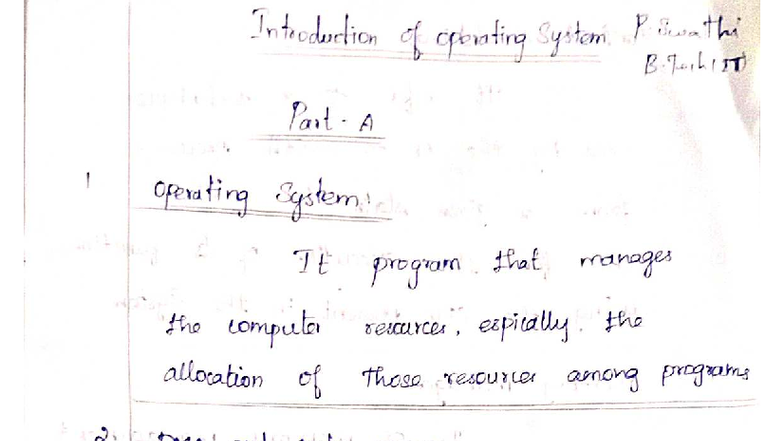 Introduction of operating System P. Swathi
B.Tech (IT)
Part - A
1 Operating System:
It program that manages
the computer resources, espically the
allocation of those resources among programs
2.